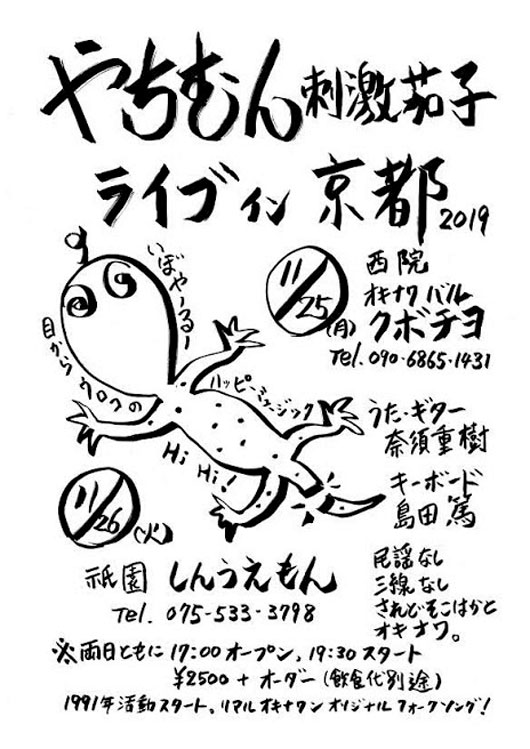 やちむん刺激茄子
ライブ イン 京都 2019
11/25(月)
西院
オキナワ バル
クボチヨ
Tel. 090-6865-1431
いぼやーるー
目からウロコの
ハッピーミュージック
Hi Hi!
うた・ギター
奈須重樹
キーボード
島田 篤
11/26(火)
祇園 しんうえもん
Tel. 075-533-3798
民謡なし
三線なし
されどそこはかと
オキナワ。
※両日ともに 17:00 オープン、19:30 スタート
¥2500 + オーダー (飲食代別途)
1991年活動スタート。リアルオキナワン オリジナル フォークソング!